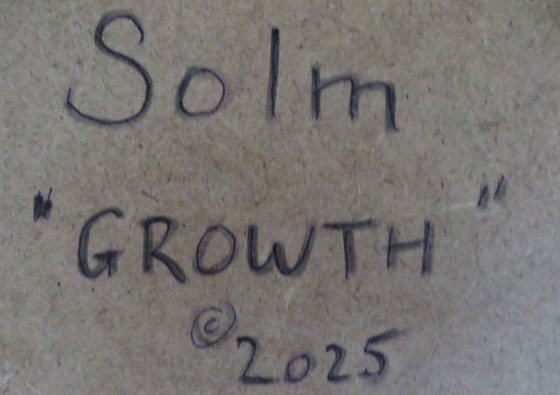 Solm
"GROWTH"
© 2025